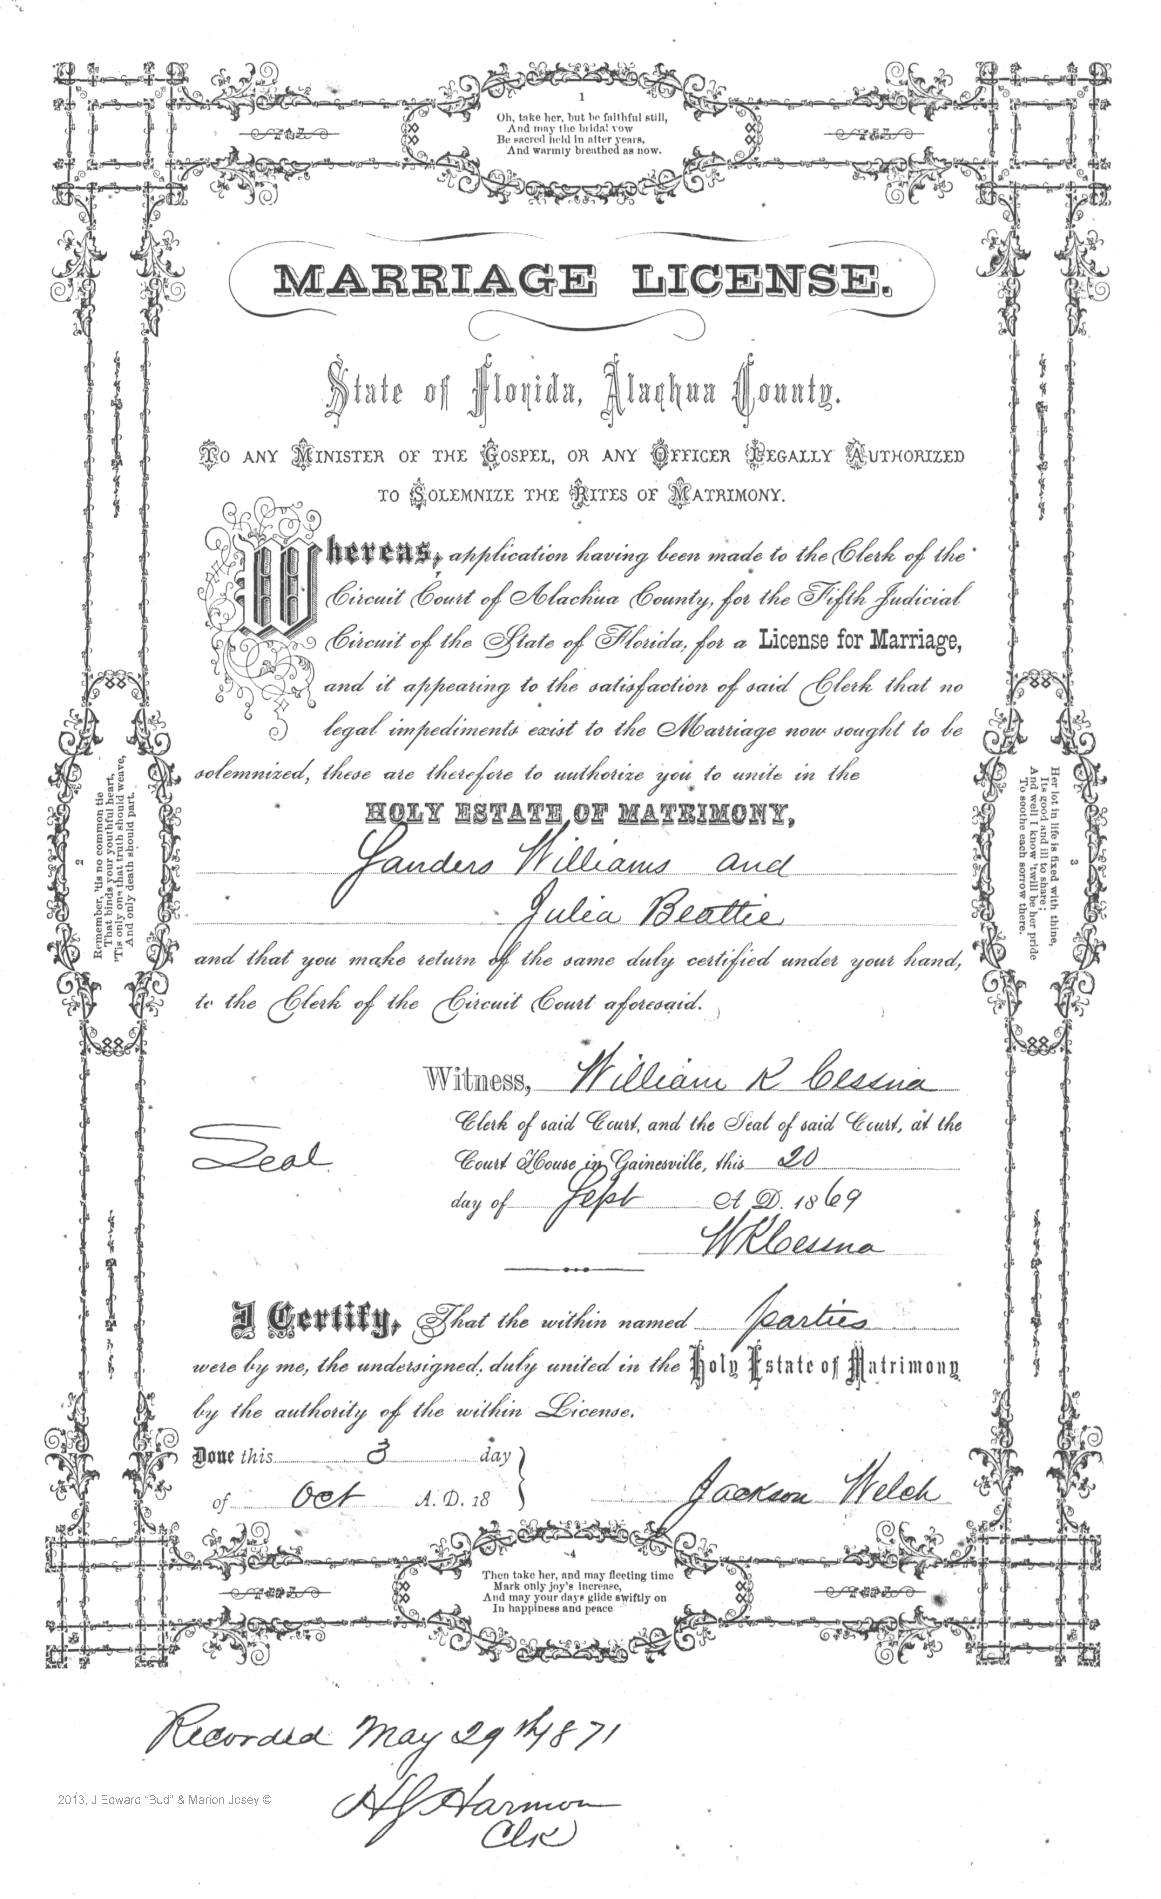 1
Oh, take her, but be faithful still,
And may the bridal vow
Be sacred held in after years,
And warmly breathed as now.
MARRIAGE LICENSE.
State of Florida, Alachua County.
TO ANY MINISTER OF THE GOSPEL, OR ANY OFFICER LEGALLY AUTHORIZED
TO SOLEMNIZE THE RITES OF MATRIMONY.
Whereas, application having been made to the Clerk of the
Circuit Court of Alachua County, for the Fifth Judicial
Circuit of the State of Florida, for a License for Marriage,
and it appearing to the satisfaction of said Clerk that no
legal impediments exist to the Marriage now sought to be
solemnized, these are therefore to authorize you to unite in the
HOLY ESTATE OF MATRIMONY,
Sanders Williams and
Julia Beattie
and that you make return of the same duly certified under your hand,
to the Clerk of the Circuit Court aforesaid.
2
Remember, 'tis no common tie
That binds your youthful heart,
'Tis only one that truth should weave,
And only death should part.
3
Her lot in life is fixed with thine,
Its good and ill to share;
And well I know 'twill be her pride
To soothe each sorrow there.
Witness, William K Cessna
Clerk of said Court, and the Seal of said Court, at the
Seal
Court House in Gainesville, this 20
day of Sept A. D. 1869
WKCessna
I Certify, That the within named parties
were by me, the undersigned, duly united in the Holy Estate of Matrimony
by the authority of the within License.
Done this 3 day
of Oct A. D. 18
Jackson Welch
4
Then take her, and may fleeting time
Mark only joy's increase,
And may your days glide swiftly on
In happiness and peace
Recorded May 29th 1871
2013, J Edward "Bud" & Marion Josey ©
HJ Harmon
Clk